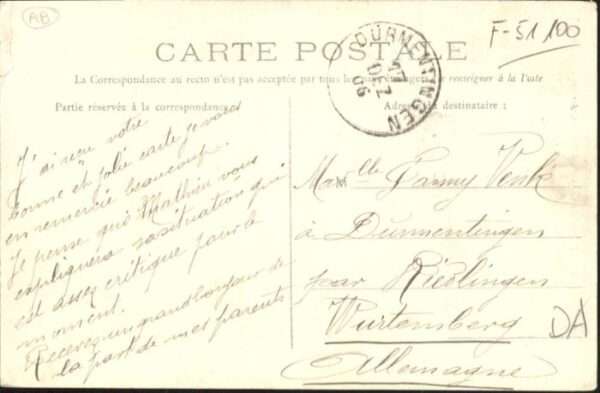 AB
F-51 100
CARTE POSTALE
DÜRMENTINGEN
17 DEZ 06
La Correspondance au recto n'est pas acceptée par tous les pays étrangers. Se renseigner à la Poste
Partie réservée à la correspondance
Adresse du destinataire :
J'ai reçu votre
bonne et jolie carte je vous
en remercie beaucoup.
Je pense que Mathieu vous
expliquera sa situation qui
est assez critique pour le
moment.
Recevez un grand bonjour de
la part de mes parents
Melle Fanny Venk
à Dürmentingen
par Riedlingen
Wurtemberg
Allemagne
DA